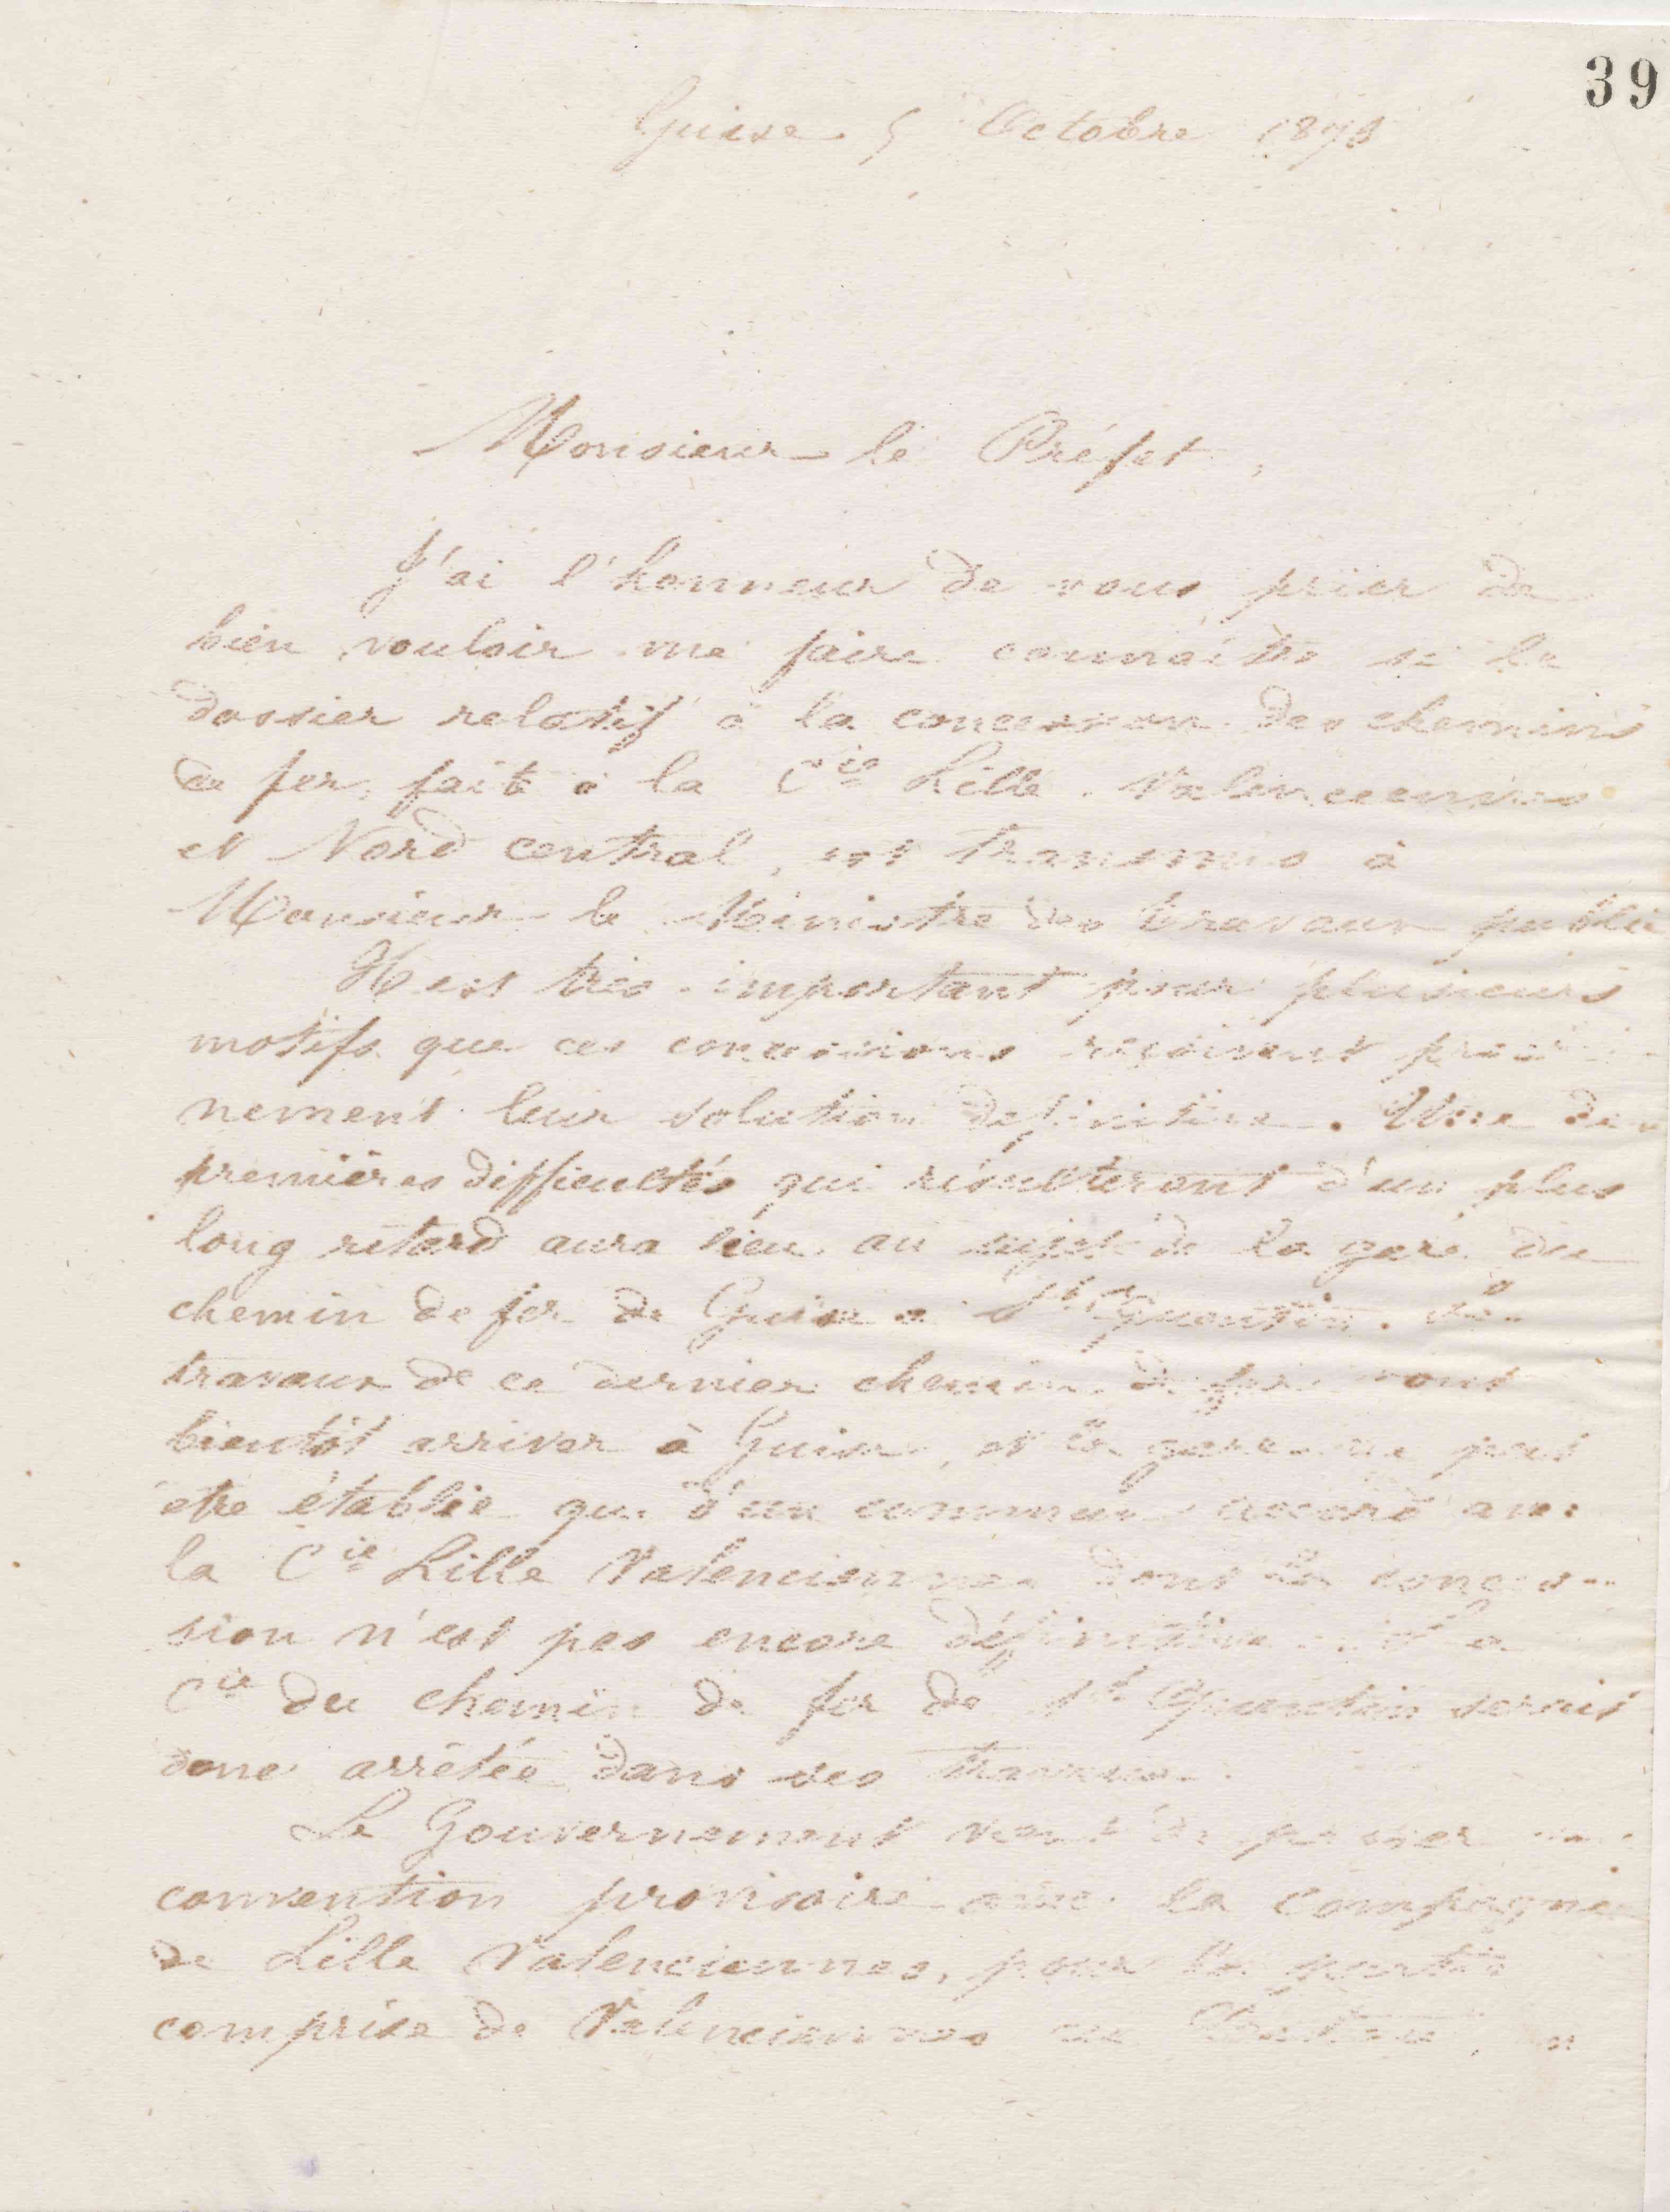 39
Guise 5 Octobre 1873
Monsieur le Préfet,
J'ai l'honneur de vous prier de
bien vouloir me faire connaître si le
dossier relatif à la concession des chemins
de fer, faite à la Cie Lille Valenciennes
et Nord central, est transmis à
Monsieur le Ministre des travaux public
Il est très important pour plusieurs
motifs que ces concessions reçoivent
nement leur solution définitive. Une des
premières difficultés qui résulteront d'un plus
long retard aura lieu au sujet de la gare du
chemin de fer de Guise à St Quentin. Les
travaux de ce dernier chemin de fer vont
bientôt arriver à Guise, et la gare ne peut
etre établie que d'un commun accord avec
la Cie Lille Valenciennes dont la conces-
sion n'est pas encore définitive. La
Cie du chemin de fer de St Quentin serait
donc arrêtée dans ses travaux.
Le Gouvernement vient de passer une
convention provisoire avec la compagnie
de Lille Valenciennes, pour la partie
comprise de Valenciennes au